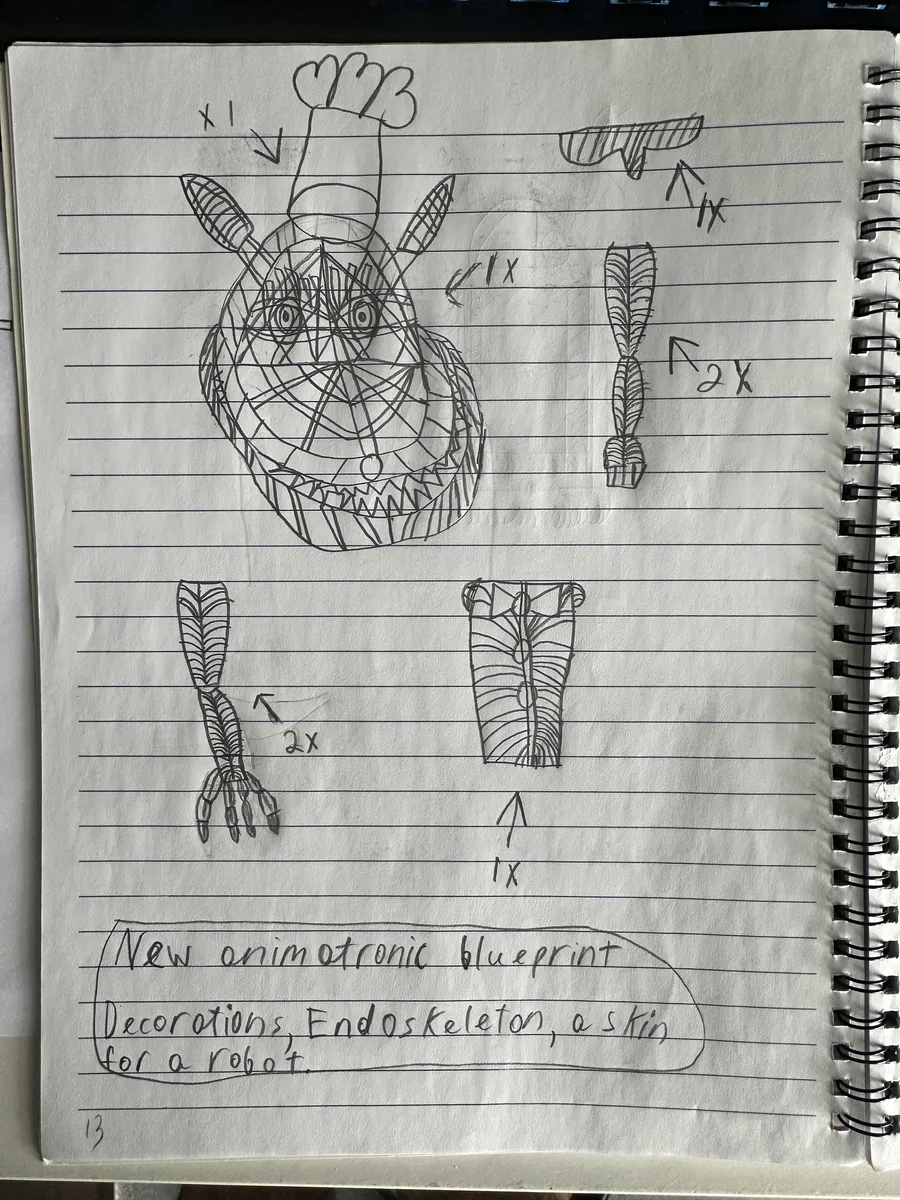 x 1
1x
1x
2x
2x
1x
New animatronic blueprint
Decorations, Endoskeleton, a skin
for a robot.
13